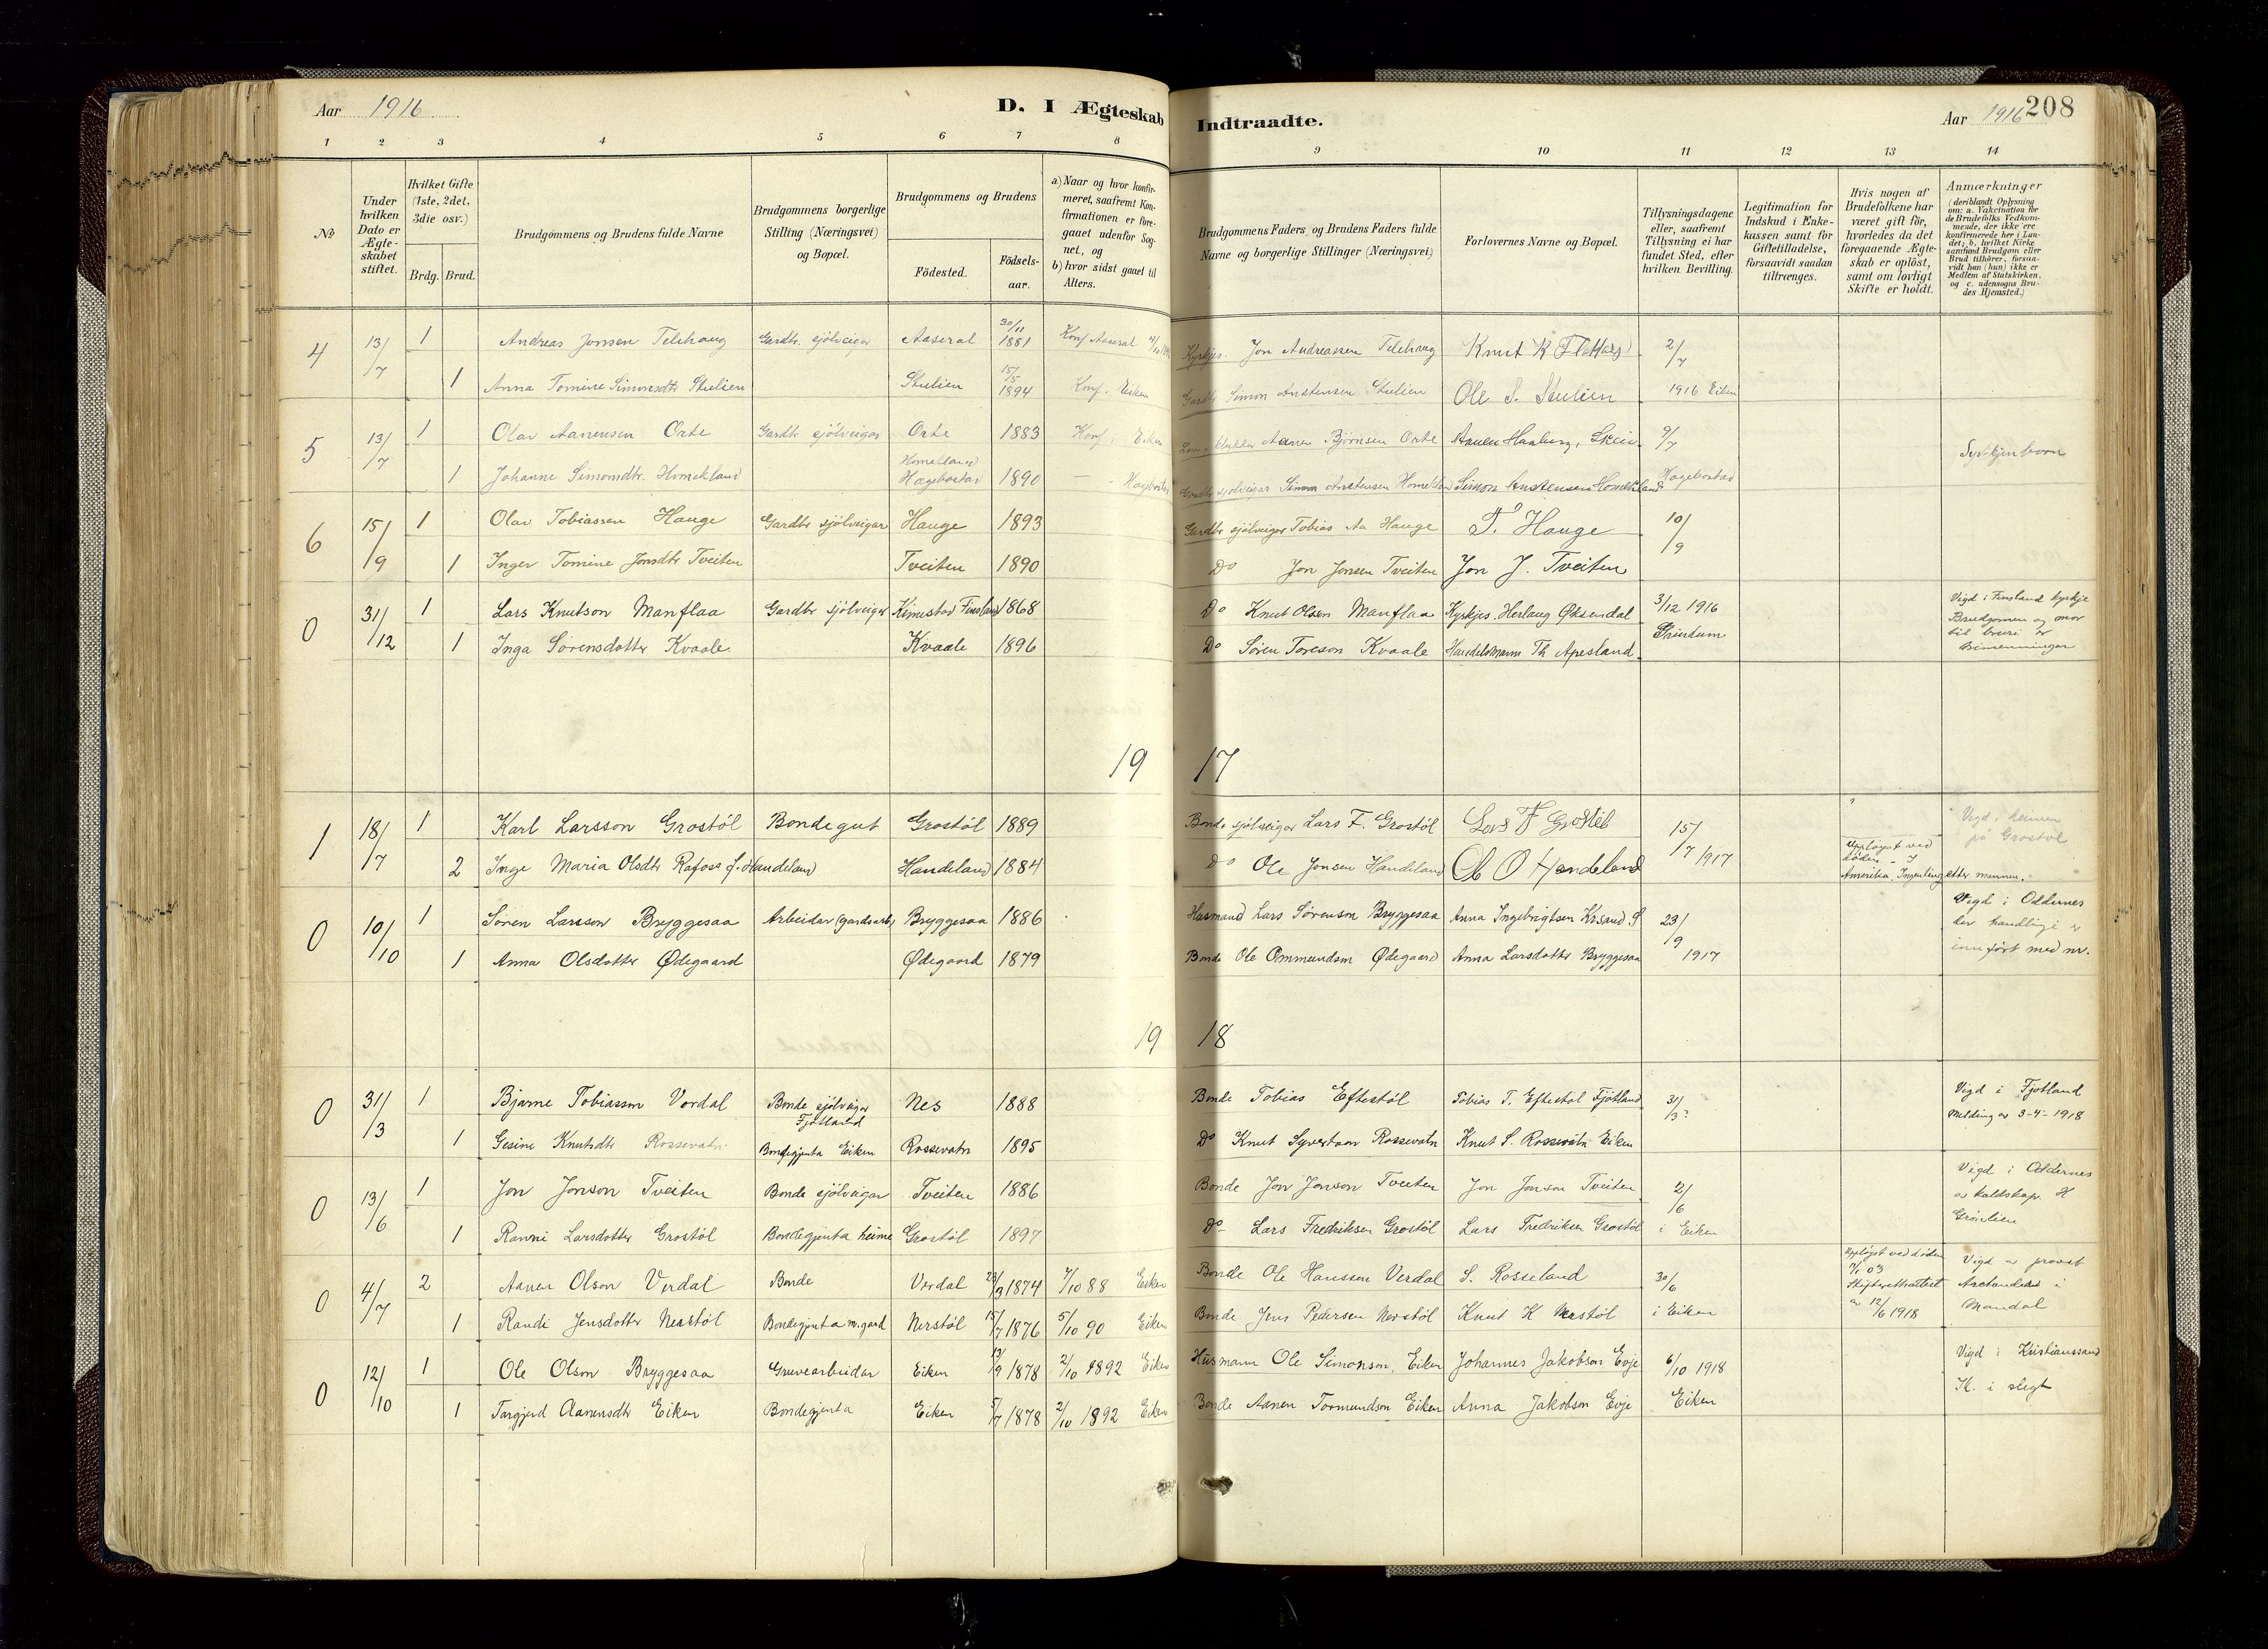 Aar 1916
D. I Ægteskab Indtraadte.
Aar 1916 208
1 2 3 4 5 6 7 8 9 10 11 12 13 14
№
Under hvilken Dato er Ægteskabet stiftet.
Hvilket Gifte (1ste, 2det, 3die osv.)
Brdg. Brud.
Brudgommens og Brudens fulde Navne
Brudgommens borgerlige Stilling (Næringsvei) og Bopæl.
Brudgommens og Brudens
Födested. Födsels-aar.
a) Naar og hvor konfirmeret, saafremt Konfirmationen er foregaaet udenfor Sognet, og
b) hvor sidst gaaet til Alters.
Brudgommens Faders og Brudens Faders fulde Navne og borgerlige Stillinger (Næringsvei)
Forlovernes Navne og Bopæl.
Tillysningsdagene eller, saafremt Tillysning ei har fundet Sted, efter hvilken Bevilling.
Legitimation for Indskud i Enkekassen samt for Giftetilladelse, forsaavidt saadan tiltrænges.
Hvis nogen af Brudefolkene har været gift för, hvorledes da det foregaaende Ægteskab er oplöst, samt om lovligt Skifte er holdt.
Anmærkninger (deriblandt Oplysning om: a. Vakcination for de Brudefolks Vedkommende, der ikke ere konfirmerede her i Landet; b. hvilket Kirkesamfund Brudgom eller Brud tilhörer, forsaavidt han (hun) ikke er Medlem af Statskirken, og c. udensogns Brudes Hjemsted.)
4 13/7 1 Andreas Jonsen Telehaug Gardbr. sjölveigar Aaseral 30/11 1881 Konf Aaseral Kyrkjes. Jon Andreassen Telehaug Knut K Flottorp 2/7
1 Anna Tomine Simonsdtr Stulien Stulien 15/5 1894 Konf. Eiken Gardbr Simon Anstensen Stulien Ole S. Stulien 1916 Eiken
5 13/7 1 Olav Aanensen Örte Gardbr sjölveigar Örte 1883 Konf. Eiken Aanen Björnsen Örte Aanen Hauberg, Skeie 9/7 Syskjenborn
1 Johanne Simonsdtr. Homekland Homekland Hægebostad 1890 - Hægebostad Gardbr sjölveigar Simon Anstensen Homekland Simon Anstensen Homekland Hægebostad
6 15/9 1 Olav Tobiassen Hauge Gardbr sjölveigar Hauge 1893 Gardbr sjölveigar Tobias Aa Hauge T. Hauge 10/9
1 Inger Tomine Jonsdtr Tveiten Tveiten 1890 Do Jon Jonsen Tveiten Jon J. Tveiten
0 31/12 1 Lars Knutson Manflaa Gardbr sjölveigar Kimestad Finsland 1868 Do Knut Olsen Manflaa Kyrkjes. Herlaug Øksendal 3/12 1916 Vigd i Finsland kyrkje
1 Inga Sörensdotter Kvaale Kvaale 1896 Do Sören Toreson Kvaale Handelsmann Th Apesland Grindum Brudgomen og mor til bruri er
19 17
1 18/7 1 Karl Larsson Grostöl Bondegut Grostöl 1889 Bonde sjölveigar Lars F. Grostöl Lars F Grostöl 15/7 1917 Vigd i heimen på Grostöl
2 Inge Maria Olsdtr Rafoss f. Handeland Handeland 1884 Do Ole Jonsen Handeland O O Handeland Upplöyst ved döden - I Amerika. Ingenting etter mannen.
0 10/10 1 Sören Larsson Bryggesaa Arbeidar (gardsarb) Bryggesaa 1886 Husmand Lars Sörenson Bryggesaa Anna Ingebrigtsen Krsand S 23/9 Vigd i Oddernes der handlingi er
1 Anna Olsdotter Ødegaard Ødegaard 1879 Bonde Ole Ommundsen Ødegaard Anna Larsdotter Bryggesaa 1917 innfört med nr.
19 18
0 31/3 1 Bjarne Tobiasson Vordal Bonde sjölveigar Fjotland Nes 1888 Bonde Tobias Eftestöl Tobias T. Eftestöl Fjotland 31/3? Vigd i Fjotland
1 Gesine Knutsdtr Rossevatn Bondegjenta Eiken Rossevatn 1895 Do Knut Syvertson Rossevatn Knut S. Rossevatn Eiken Melding av 3-4-1918
0 13/6 1 Jon Jonson Tveiten Bonde sjölveigar Tveiten 1886 Bonde Jon Jonson Tveiten Jon Jonson Tveiten 2/6 Vigd i Oddernes av kaldskap. H
1 Ranni Larsdotter Grostöl Bondegjenta heime Grostöl 1897 Do Lars Fredriksen Grostöl Lars Fredriksen Grostöl i Eiken
0 4/7 2 Aanen Olson Verdal Bonde Verdal 23/3 1874 7/10 88 Eiken Bonde Ole Hanssen Verdal S. Rosseland 30/6 Upplöyst ved döden 7/1 03 Skifterettsattest av 12/6 1918 Vigd av prost i Mandal
1 Randi Jensdotter Nerstöl Bondegjenta m. gard Nerstöl 15/7 1876 5/10 90 Eiken Bonde Jens Pedersen Nerstöl Knut K Nerstöl i Eiken
0 12/10 1 Ole Olson Bryggesaa Gruvearbeidar Eiken 13/9 1878 2/10 1892 Eiken Husmann Ole Simonson, Eiken Johannes Jakobson Evje 6/10 1918 Vigd i Kristianssand
1 Targjerd Aanensdtr Eiken Bondegjenta Eiken 5/7 1878 2/10 1892 Eiken Bonde Aanen Tormundson Eiken Anna Jakobson Evje Eiken I. i slegt